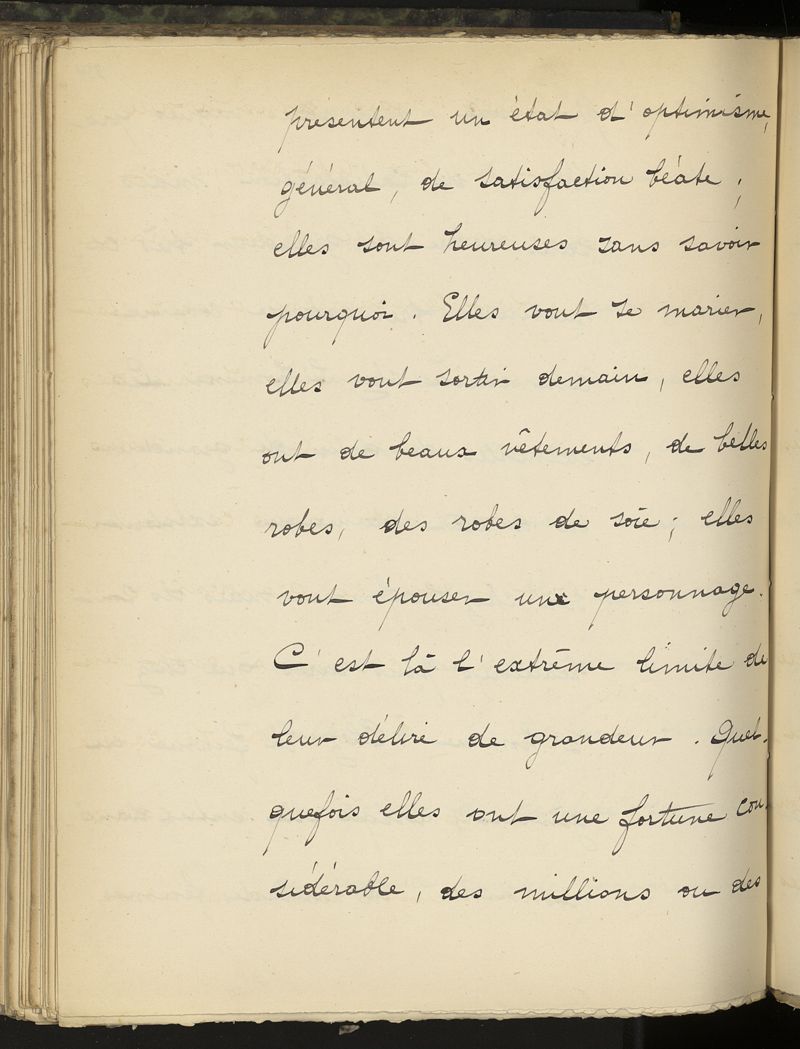 présentent un état d'optimisme
général, de satisfaction béate ;
elles sont heureuses sans savoir
pourquoi. Elles vont se marier,
elles vont sortir demain, elles
ont de beaux vêtements, de belles
robes, des robes de soie ; elles
vont épouser un personnage.
C'est là l'extrême limite de
leur délire de grandeur. Quel-
quefois elles ont une fortune con-
sidérable, des millions ou des